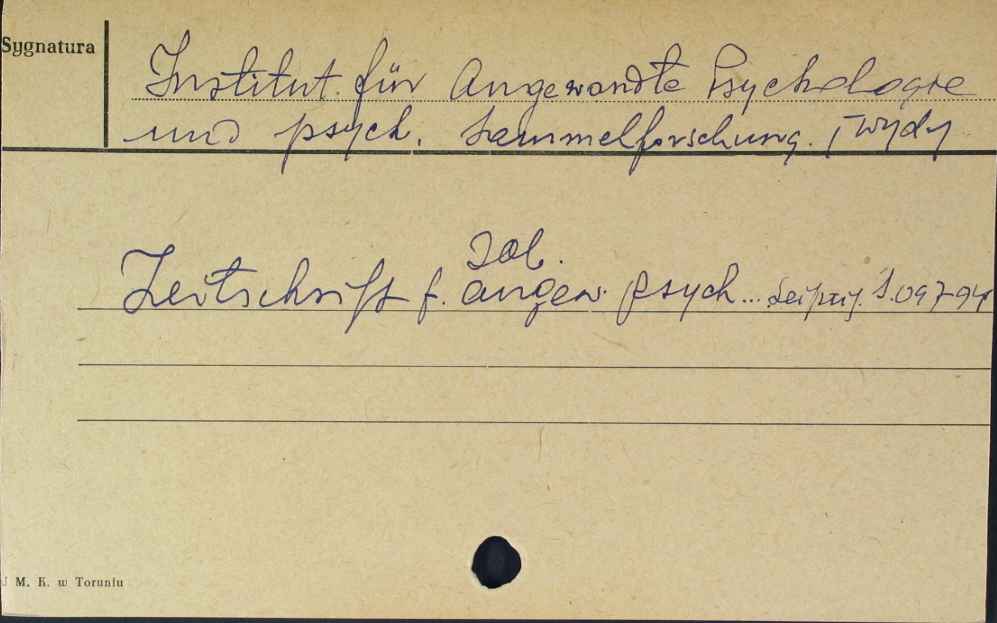 Sygnatura
Institut für Angewandte Psychologie
und psych. Sammelforschung. /wyd/
zob.
Zeitschrift f. angew. Psych... Leipzig.
U M. K. w Toruniu